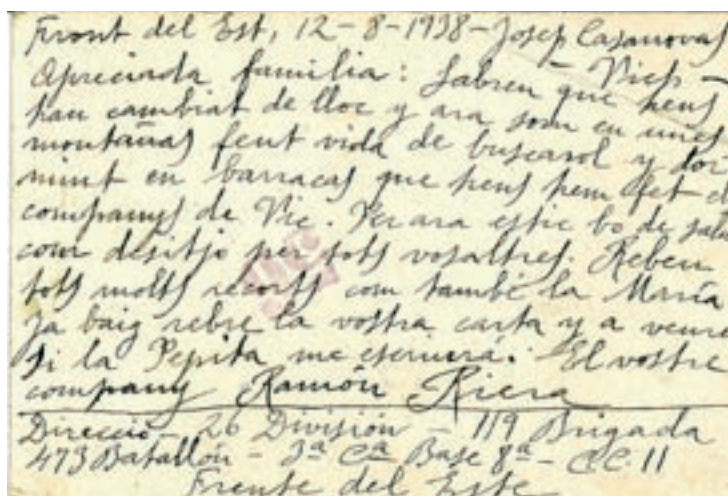 Front del Est, 12-8-1938-Josep Casanovas
- Vich -
Apreciada familia: Sabreu que hens
han cambiat de lloc y ara som en unes
montañas fent vida de buscasol y dor
mint en barracas que hens hem fet
companys de Vic. Per ara estic bo de salu
com desitjo per tots vosaltres. Rebeu
tots molts recorts com també la María
Ja baig rebre la vostra carta y a veure
si la Pepita me escriurá. El vostre
company Ramón Riera
Direcció - 26 División - 119 Brigada
473 Batallón - 3ª Cª Base 8ª - C.C. 11
Frente del Este